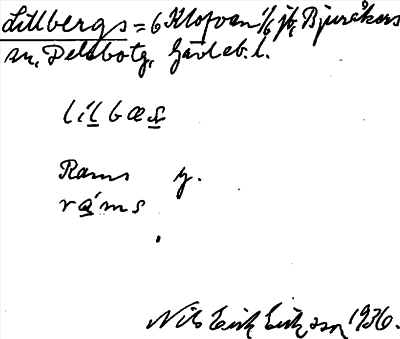 Lillbergs = 6 Klofvan 1/6 jb, Bjuråkers
sn, Delsbo tg, Gävleb. l.
lílbæs
Rams g.
ráms
Nils Erik Eriksson 1936.